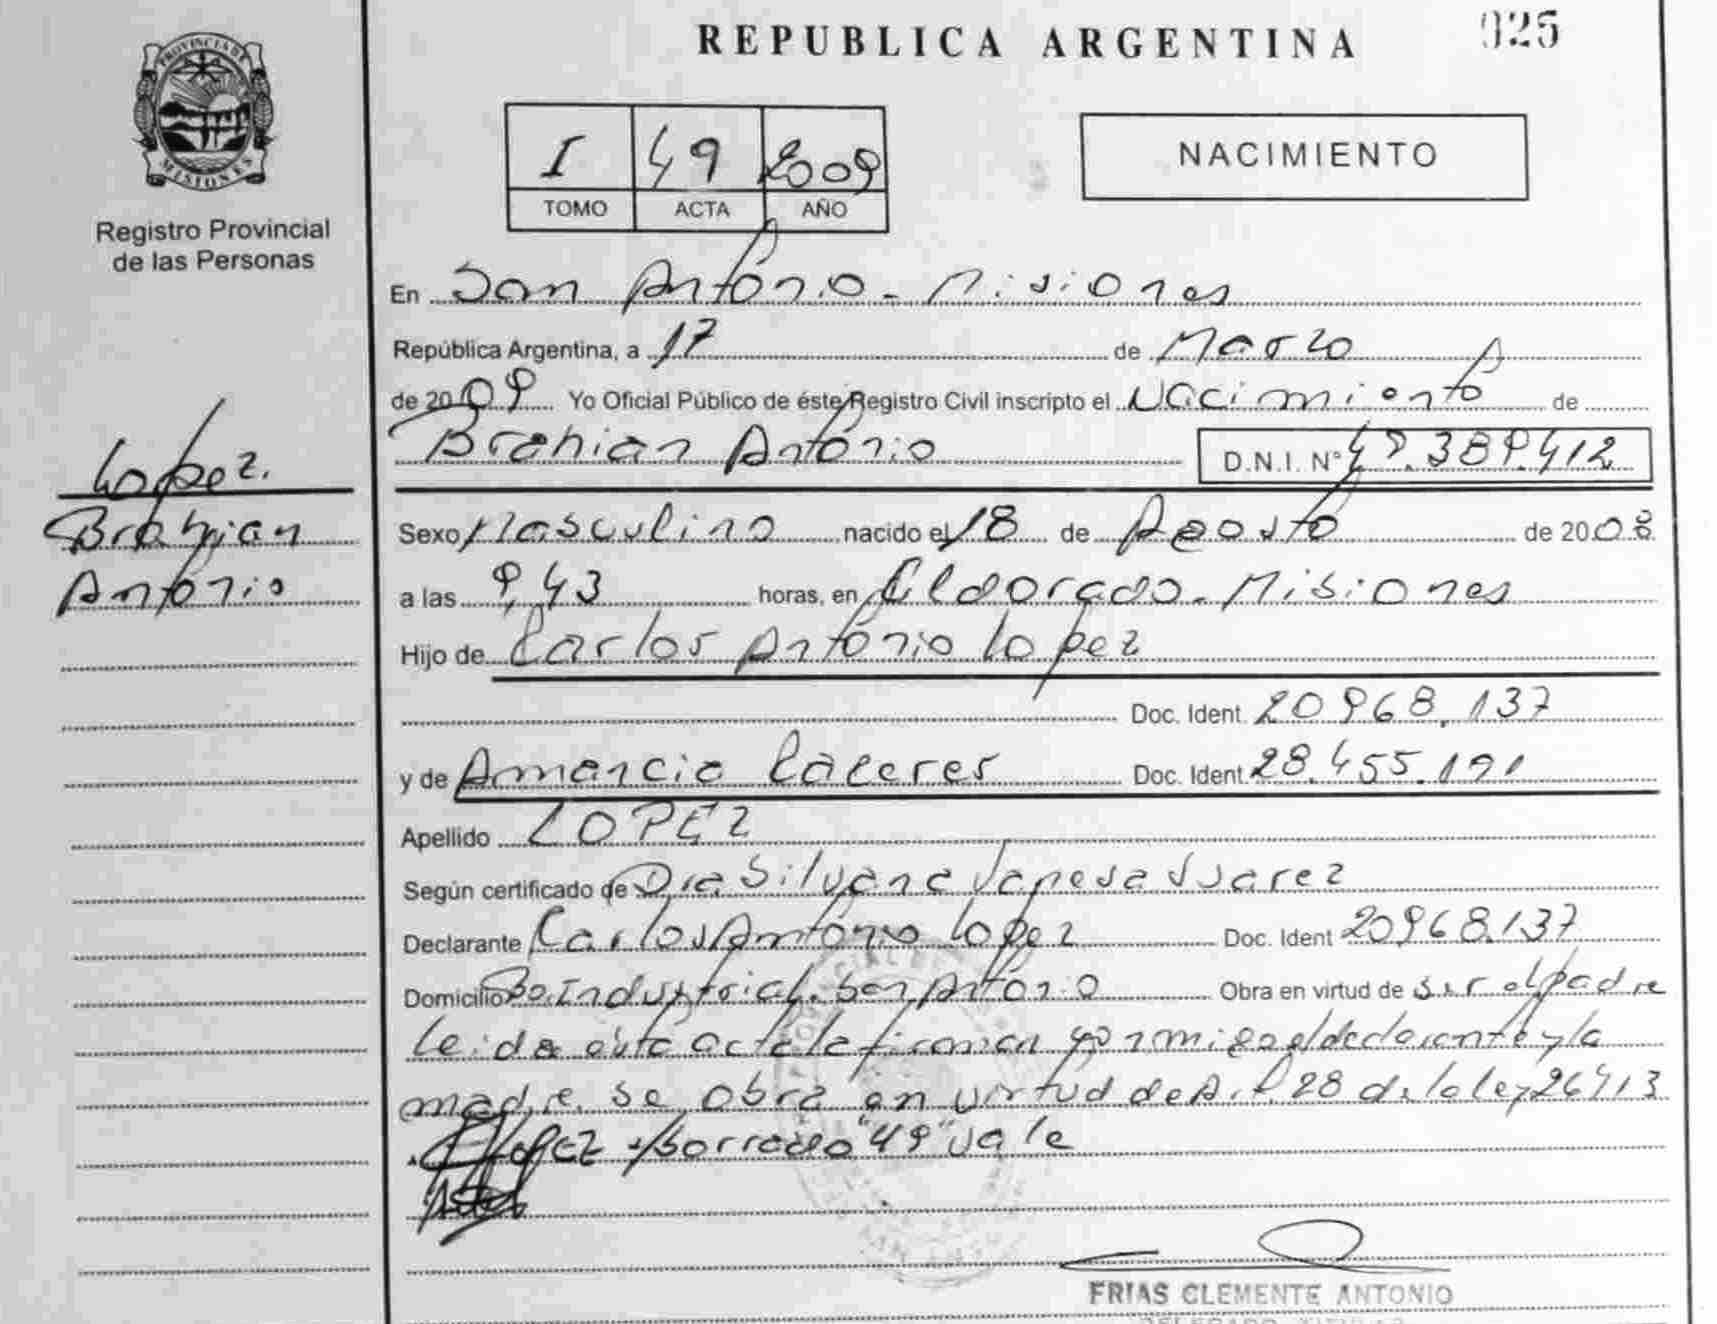 REPUBLICA ARGENTINA
025
PROVINCIA DE
MISIONES
Registro Provincial
de las Personas
I 49 2009
TOMO ACTA AÑO
NACIMIENTO
En San Antonio - Misiones
República Argentina, a 17 de Marzo
de 2009 Yo Oficial Público de éste Registro Civil inscripto el Nacimiento de
Brahian Antonio D.N.I. Nº 49.389.412
Lopez.
Brahian
Antonio
Sexo Masculino nacido el 18 de Agosto de 2008
a las 9,43 horas, en Eldorado - Misiones
Hijo de Carlos Antonio Lopez
Doc. Ident. 20968.137
y de Amancia Caceres Doc. Ident. 28.455.191
Apellido LOPEZ
Según certificado de Dra Silvana Vanesa Suarez
Declarante Carlos Antonio Lopez Doc. Ident 20968.137
Domicilio Bo. Industrial. San Antonio Obra en virtud de ser el padre
Leida esta acta la firman conmigo el declarante y la
madre. Se obra en virtud de Art. 28 de la ley 26413
s/borrado "49" vale
FRIAS CLEMENTE ANTONIO
DELEGADO TITULAR